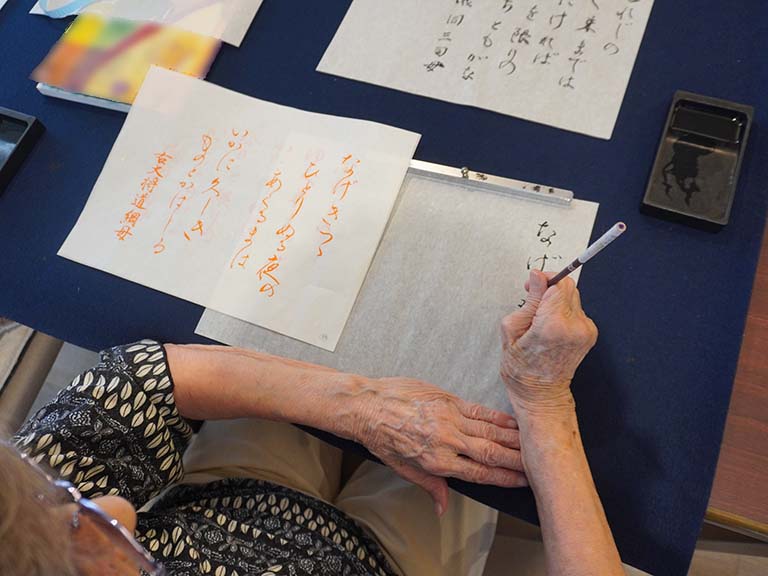 れじの
末までは
たければ
を限りの
ちともがな
同三司母
なげきつゝ
ひとりぬる夜の
あくるまは
いかに久しき
ものとかはしる
右大将道綱母
なげ